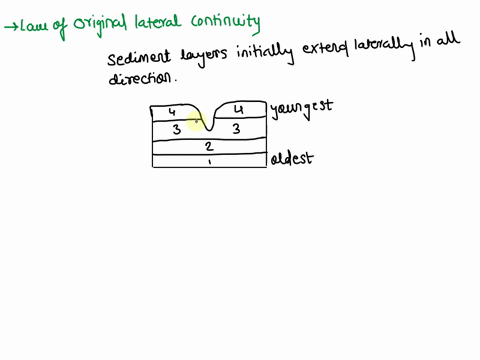 →Law of Original lateral Continuity
Sediment layers initially extend laterally in all
direction.
4 4 youngest
3 3
2
1 oldest